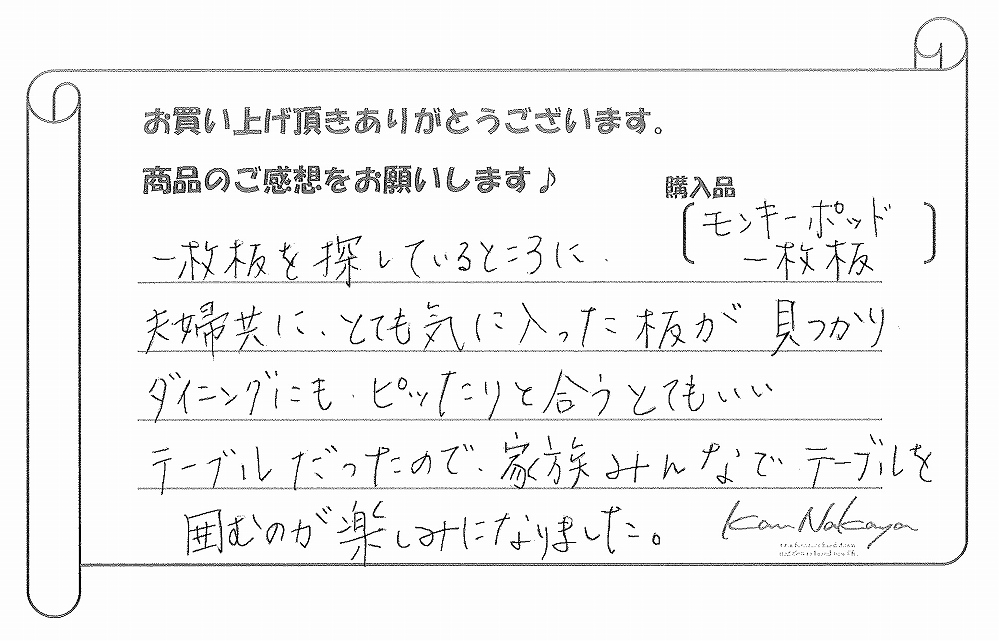 お買い上げ頂きありがとうございます。
商品のご感想をお願いします♪
購入品
モンキーポッド
一枚板
一枚板を探しているところに、
夫婦共に、とても気に入った板が見つかり
ダイニングにも、ピッたりと合うとてもいい
テーブルだったので、家族みんなでテーブルを
囲むのが楽しみになりました。
Kan Nakaya